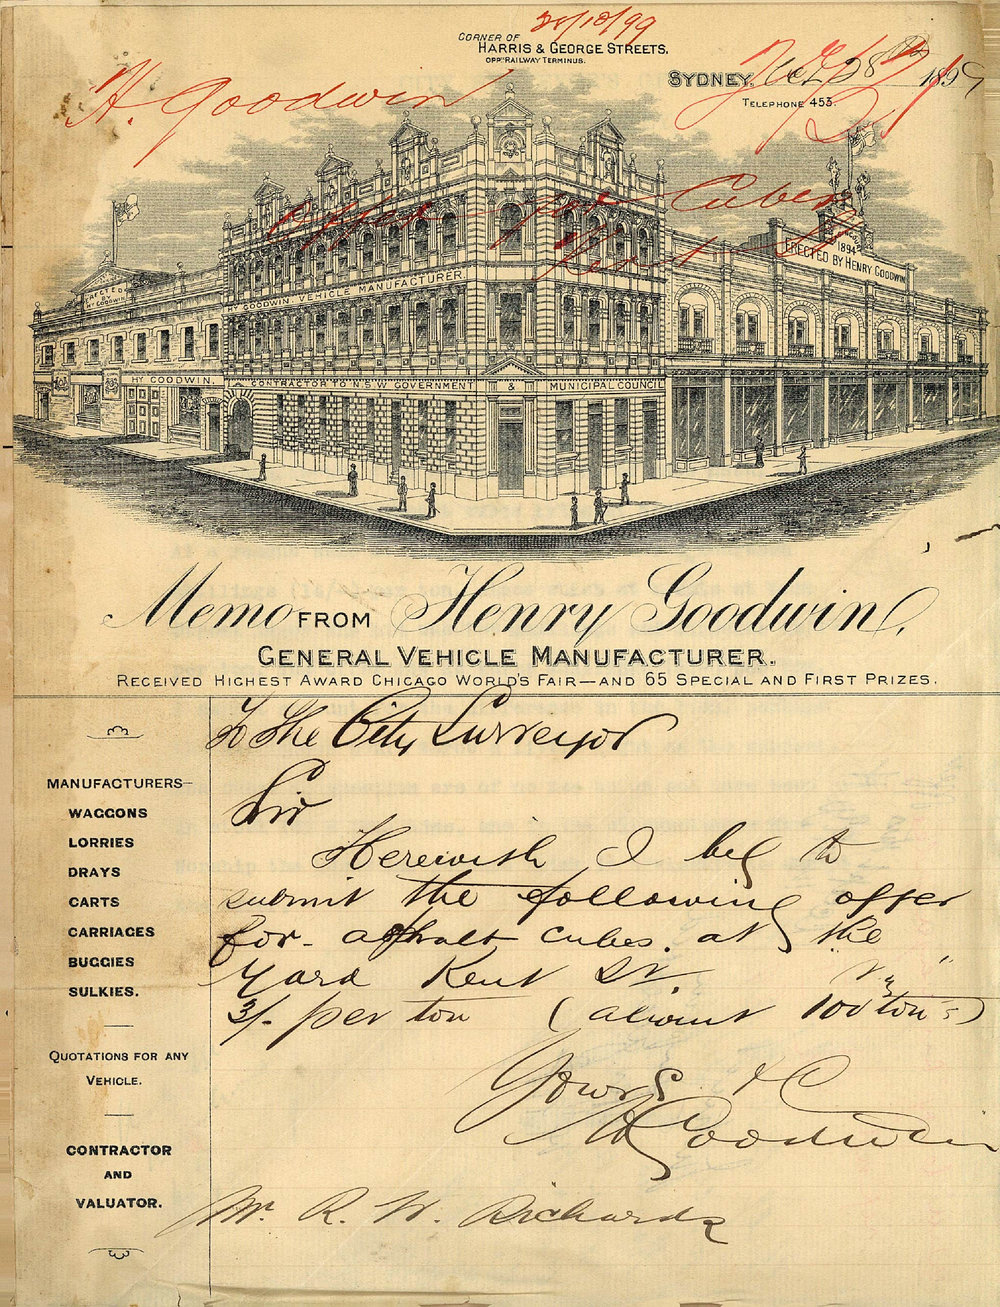 28/10/99
CORNER OF
HARRIS & GEORGE STREETS.
OPP. RAILWAY TERMINUS.
SYDNEY, Oct 28th 1899
TELEPHONE 453.
H. Goodwin
Offer for Cubes
Kent St
ERECTED BY HY GOODWIN
1894
ERECTED BY HENRY GOODWIN
HY GOODWIN. VEHICLE MANUFACTURER.
HY GOODWIN.
CONTRACTOR TO N.S.W GOVERNMENT & MUNICIPAL COUNCIL
Memo FROM Henry Goodwin,
GENERAL VEHICLE MANUFACTURER.
RECEIVED HIGHEST AWARD CHICAGO WORLD'S FAIR—AND 65 SPECIAL AND FIRST PRIZES.
To the City Surveyor
Sir
Herewith I beg to
submit the following offer
for - asphalt cubes. at the
Yard Kent St.
3/- per ton (about 100 tons)
Yours &C
H Goodwin
Mr. R. W. Richards
MANUFACTURERS—
WAGGONS
LORRIES
DRAYS
CARTS
CARRIAGES
BUGGIES
SULKIES.
QUOTATIONS FOR ANY
VEHICLE.
CONTRACTOR
AND
VALUATOR.